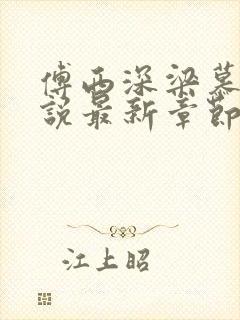 傅西深梁慕
说最新章节
江上昭